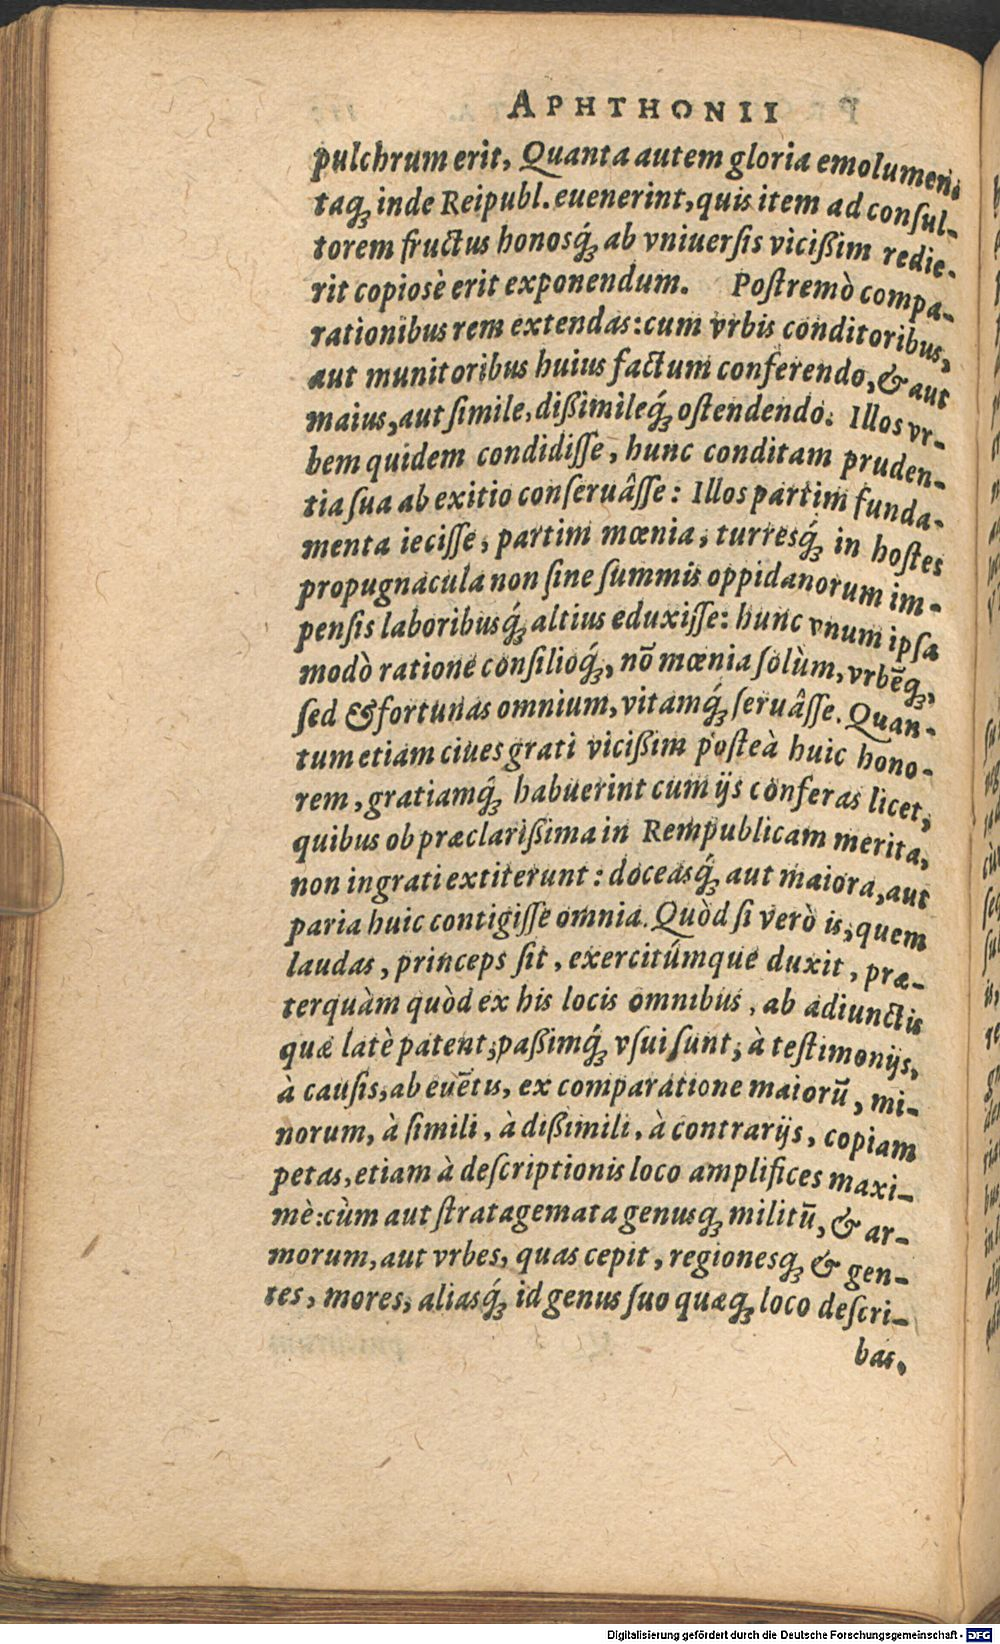 APHTHONII
pulchrum erit, Quanta autem gloria emolumen
taq́ꝫ inde Reipubl. euenerint, quis item ad conſul-
torem fructus honosq́ꝫ ab vniuerſis viciſsim redie-
rit copiosè erit exponendum. Poſtremò compa-
rationibus rem extendas: cum vrbis conditoribus,
aut munitoribus huius factum conferendo, & aut
maius, aut ſimile, diſsimileq́ꝫ oſtendendo. Illos vr-
bem quidem condidiſſe, hunc conditam pruden-
tia ſua ab exitio conſeruâſſe: Illos partim funda-
menta ieciſſe, partim mœnia, turresq́ꝫ in hoſtes
propugnacula non ſine ſummis oppidanorum im-
penſis laboribusq́ꝫ altius eduxiſſe: hunc vnum ipſa
modò ratione conſilioq́ꝫ, nō mœnia ſolùm, vrbēqꝫ,
ſed & fortunas omnium, vitamq́ꝫ ſeruâſſe. Quan-
tum etiam ciues grati viciſsim poſteà huic hono-
rem, gratiamq́ꝫ habuerint cum ijs conferas licet,
quibus ob præclariſsima in Rempublicam merita,
non ingrati extiterunt: doceasq́ꝫ aut maiora, aut
paria huic contigiſſe omnia. Quòd ſi verò is, quem
laudas, princeps ſit, exercitúmque duxit, præ-
terquàm quòd ex his locis omnibus, ab adiunctis
quæ latè patent, paſsimq́ꝫ vſui ſunt, à teſtimonijs,
à cauſis, ab euētis, ex comparatione maiorū, mi-
norum, à ſimili, à diſsimili, à contrarijs, copiam
petas, etiam à deſcriptionis loco amplifices maxi-
mè: cùm aut ſtratagemata genusqꝫ militū, & ar-
morum, aut vrbes, quas cepit, regionesqꝫ & gen-
tes, mores, aliasq́ꝫ id genus ſuo quæqꝫ loco deſcri-
bas,
Digitalisierung gefördert durch die Deutsche Forschungsgemeinschaft - DFG